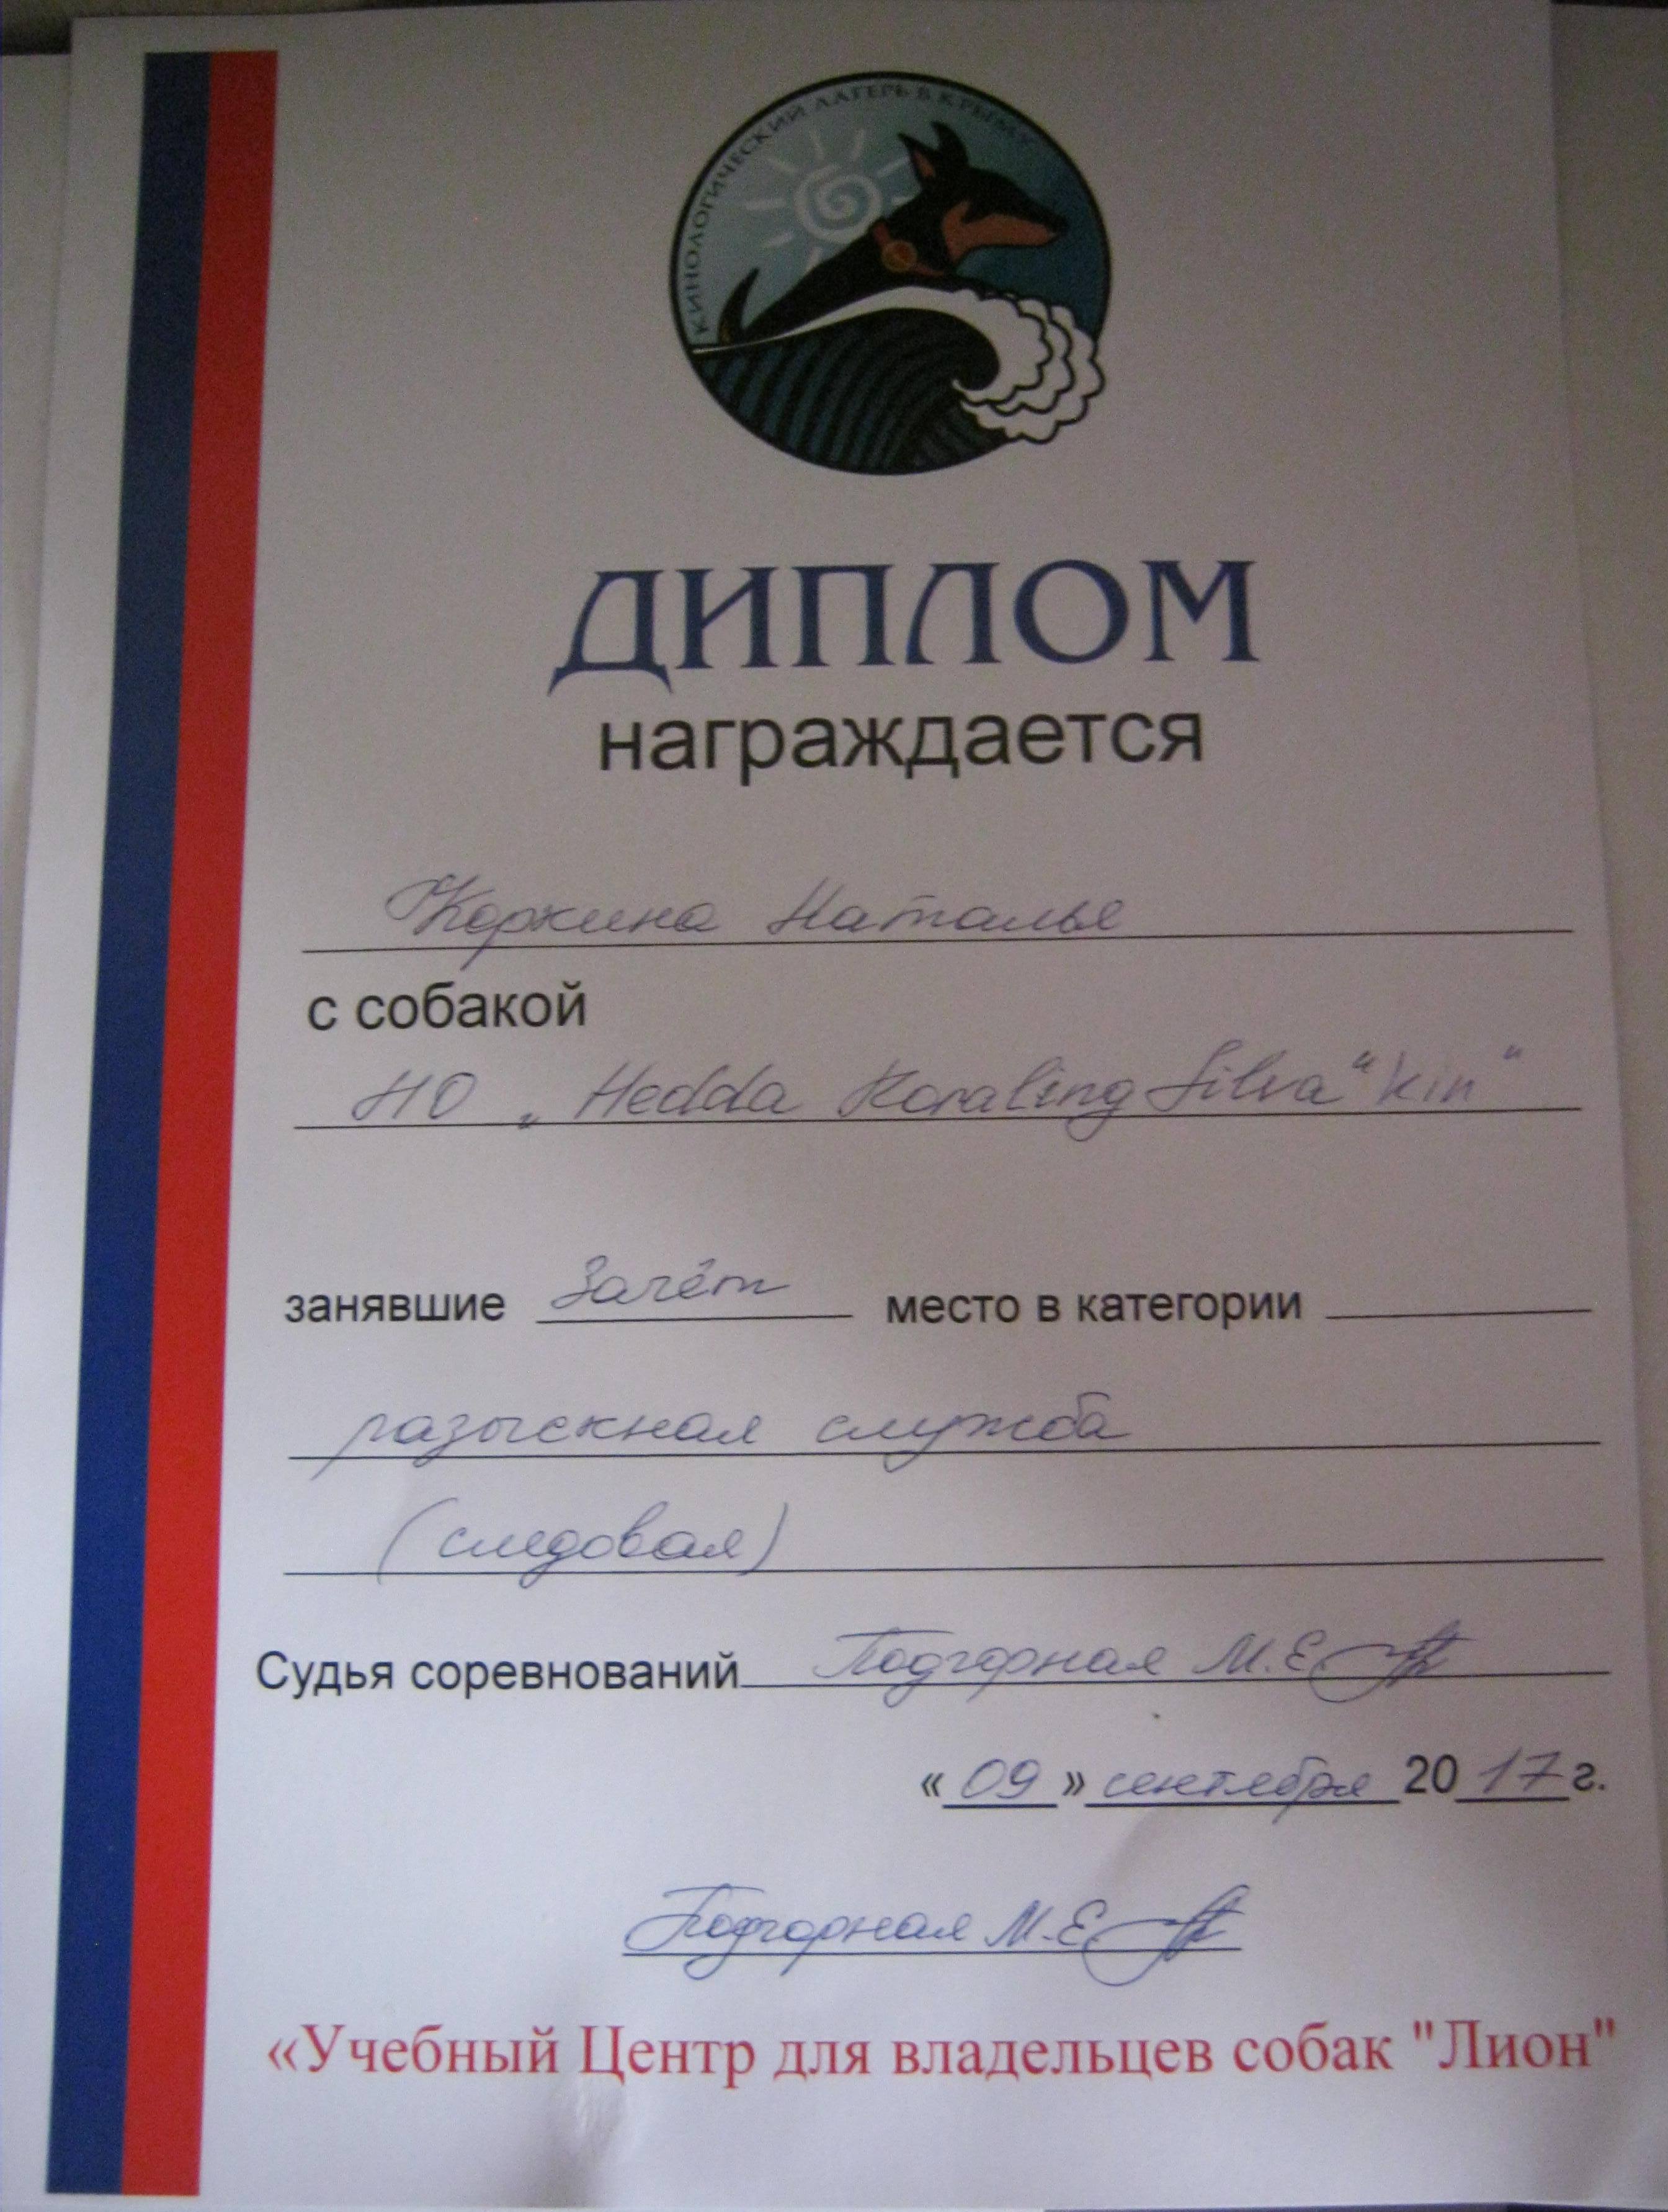 КИНОЛОГИЧЕСКИЙ ЛАГЕРЬ В КРЫМУ
ДИПЛОМ
награждается
Коркина Наталья
с собакой
НО „Hedda Koraling Silva “Kin”
занявшие Зачёт место в категории
разыскная служба
(следовая)
Судья соревнований Подгорная М.Е.
«09» сентября 2017 г.
Подгорная М.Е.
«Учебный Центр для владельцев собак "Лион"